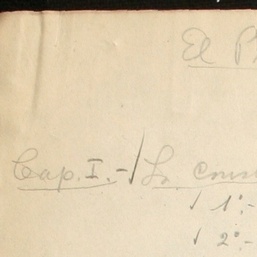 El P
Cap. I. - La cons
1º. -
2º. -